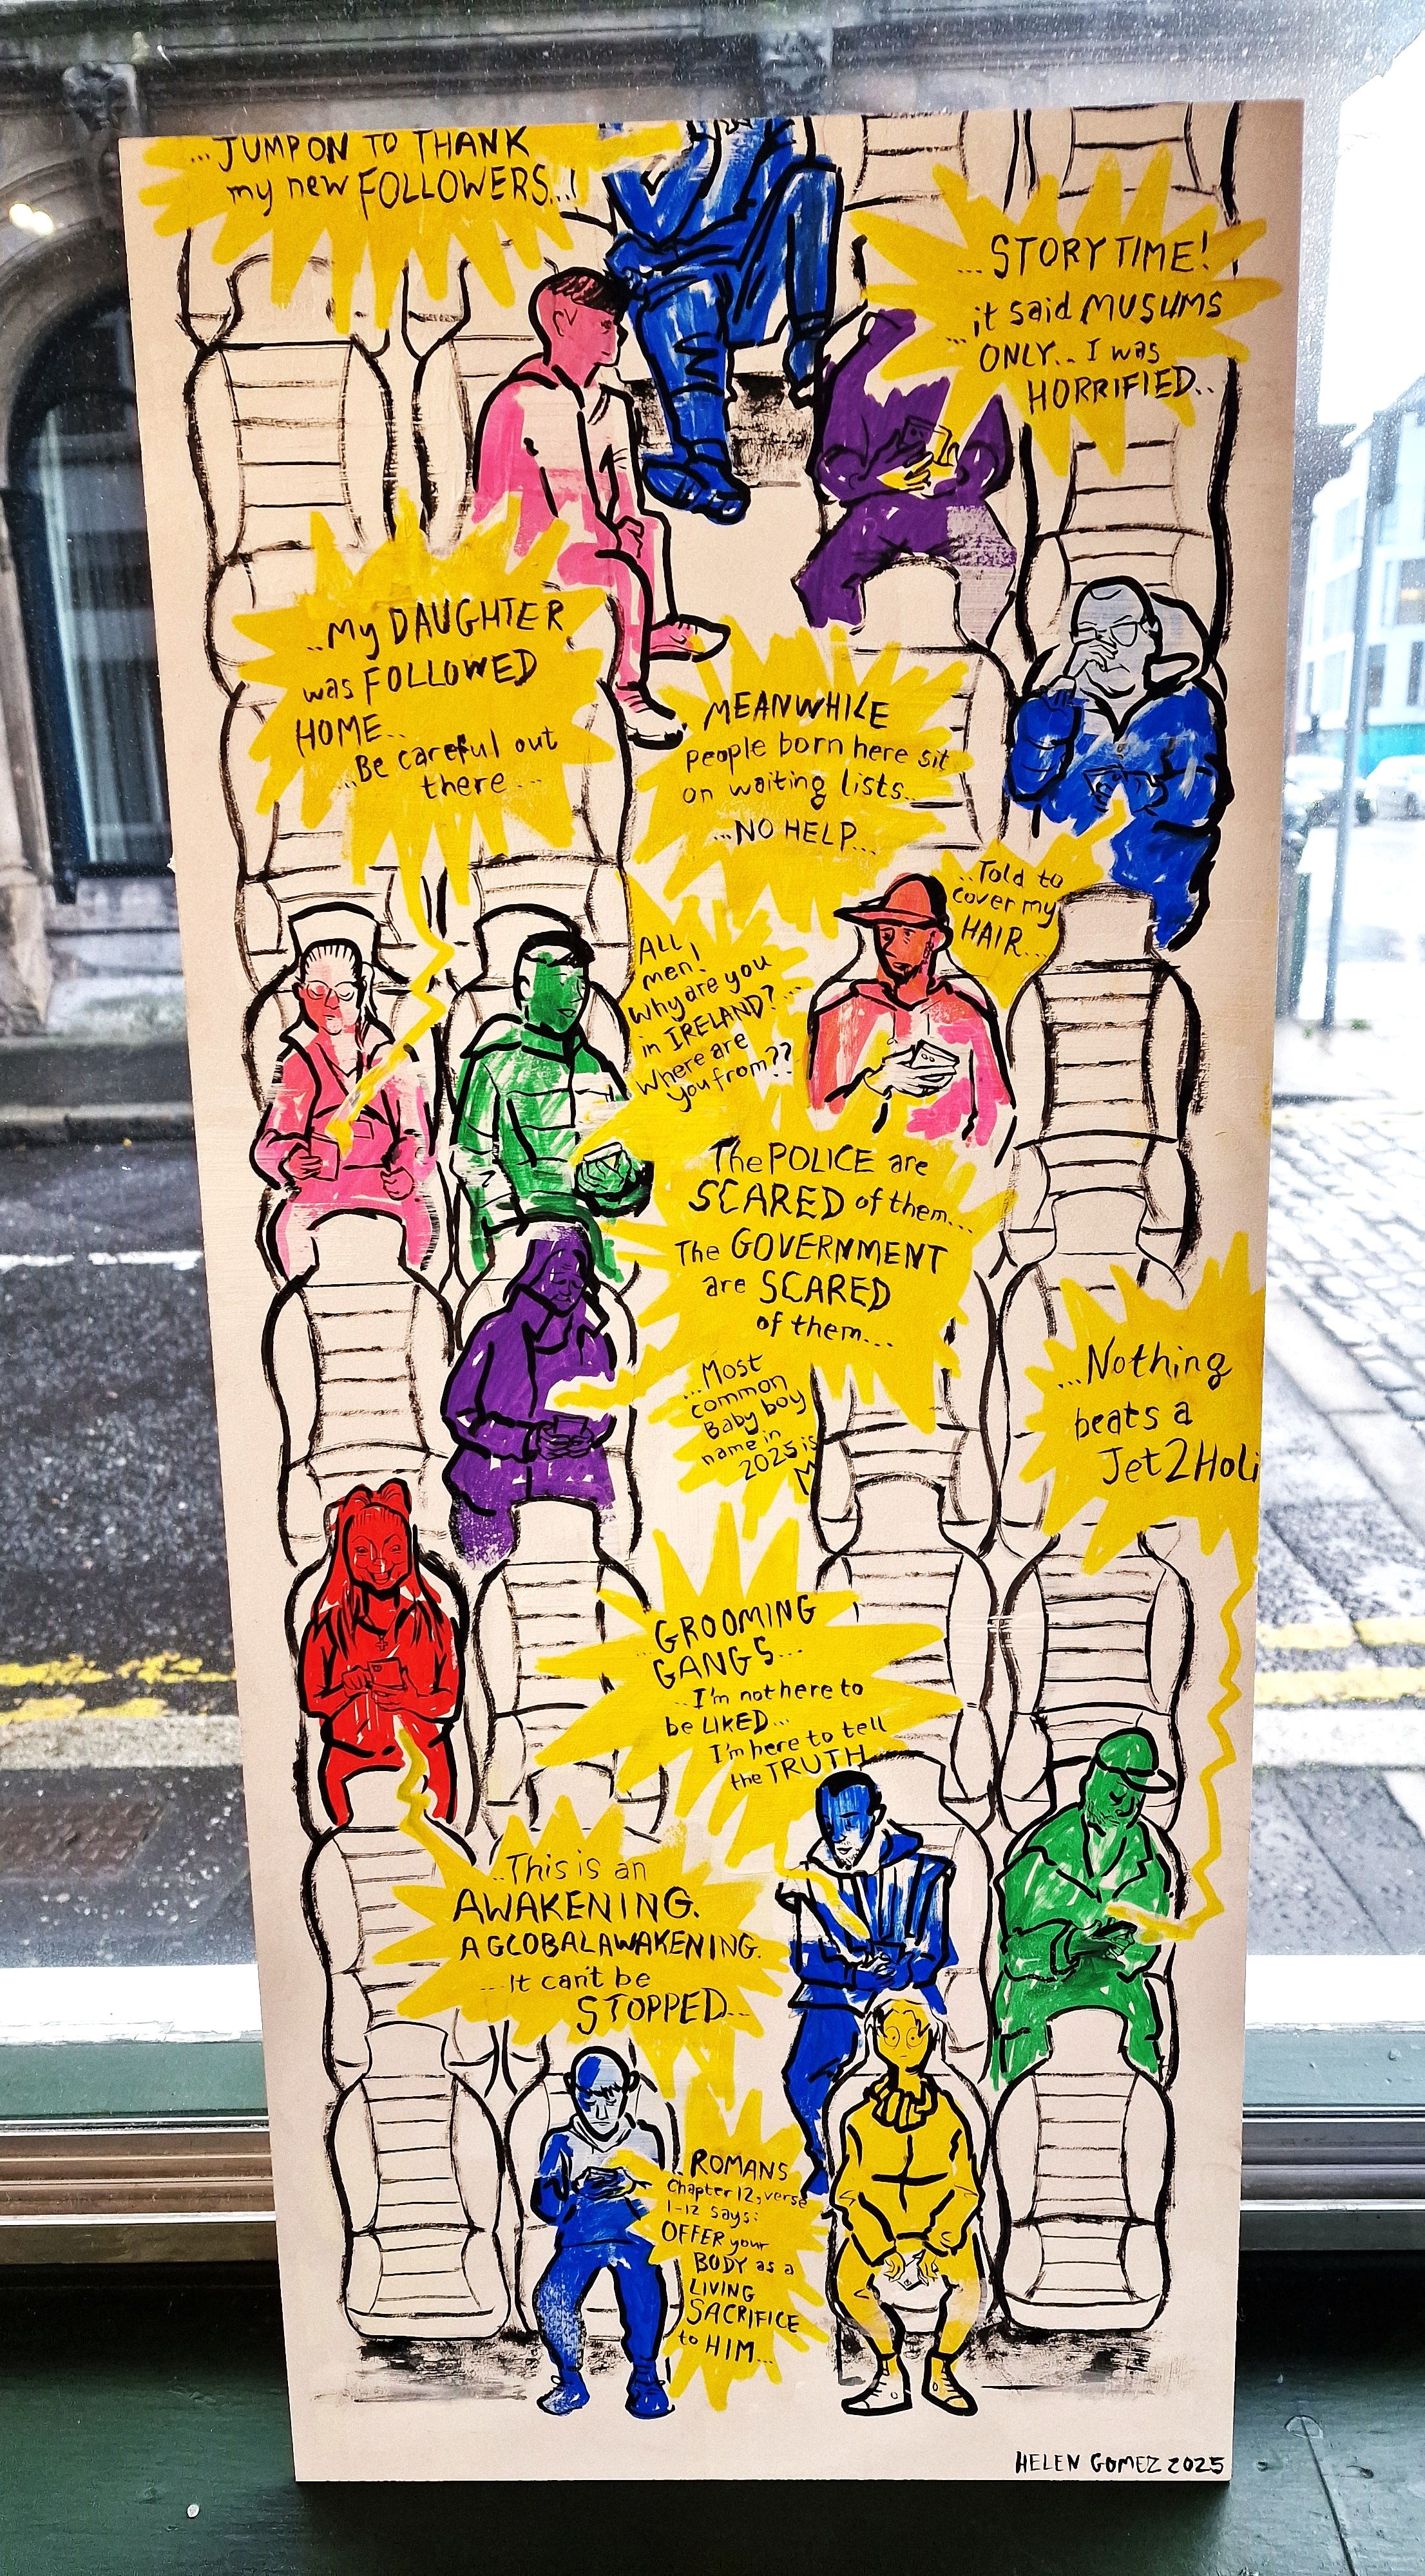 ...JUMP ON TO THANK
my new FOLLOWERS...!
...STORYTIME!
...it said MUSLIMS
ONLY... I was
HORRIFIED..
...My DAUGHTER
was FOLLOWED
HOME..
...Be careful out
there...
MEANWHILE
people born here sit
on waiting lists...
...NO HELP...
...Told to
cover my
HAIR...
ALL
men!
Why are you
in IRELAND?...
Where are
you from??
The POLICE are
SCARED of them...
The GOVERNMENT
are SCARED
of them...
...Most
common
Baby boy
name in
2025 is
M
...Nothing
beats a
Jet2Holi
GROOMING
GANGS...
...I'm not here to
be LIKED...
I'm here to tell
the TRUTH
...This is an
AWAKENING.
A GLOBAL AWAKENING.
...It can't be
STOPPED...
...ROMANS
Chapter 12, verse
1-12 says:
OFFER your
BODY as a
LIVING
SACRIFICE
to HIM...
HELEN GOMEZ 2025